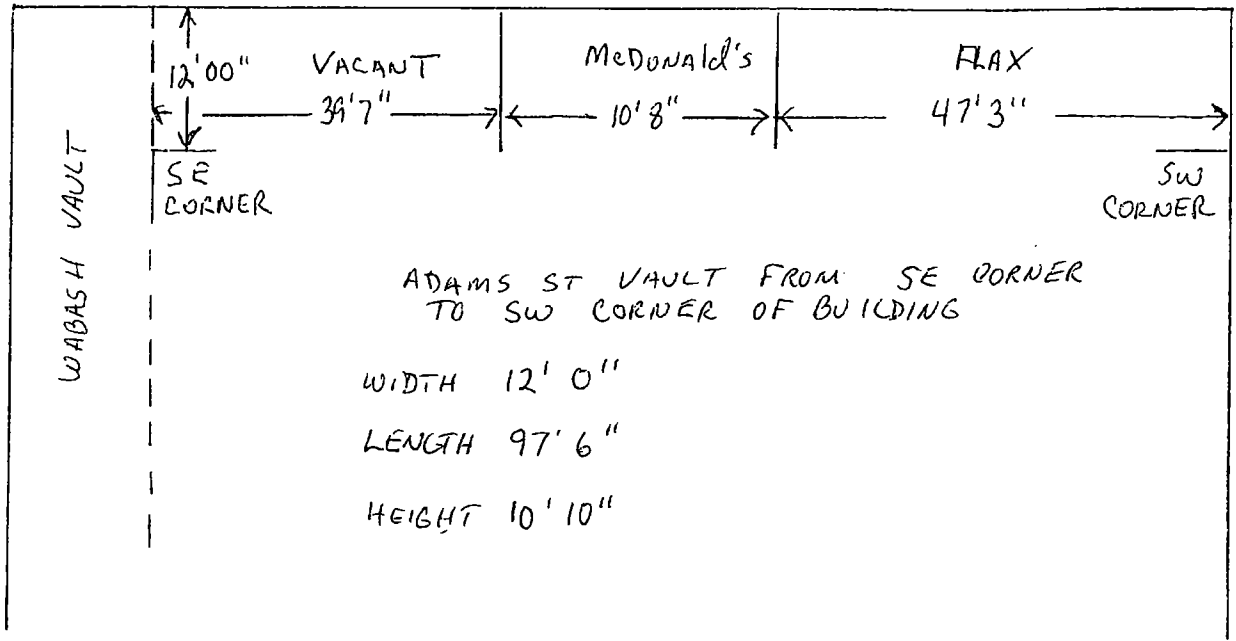 12'00"
VACANT
39'7"
McDONAld's
10'8"
FLAX
47'3"
WABASH VAULT
SE
CORNER
SW
CORNER
ADAMS ST VAULT FROM SE CORNER
TO SW CORNER OF BUILDING
WIDTH 12' 0"
LENGTH 97' 6"
HEIGHT 10' 10"